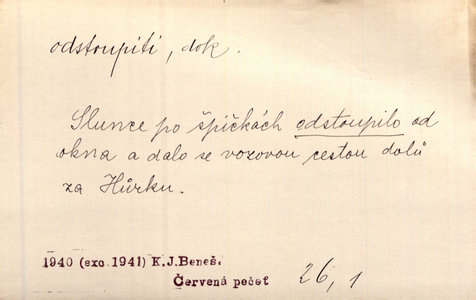 odstoupiti, dok.
Slunce po špičkách odstoupilo od
okna a dalo se vozovou cestou dolů
za Hůrku.
1940 (exc. 1941) K.J.Beneš.
Červená pečeť
26, 1